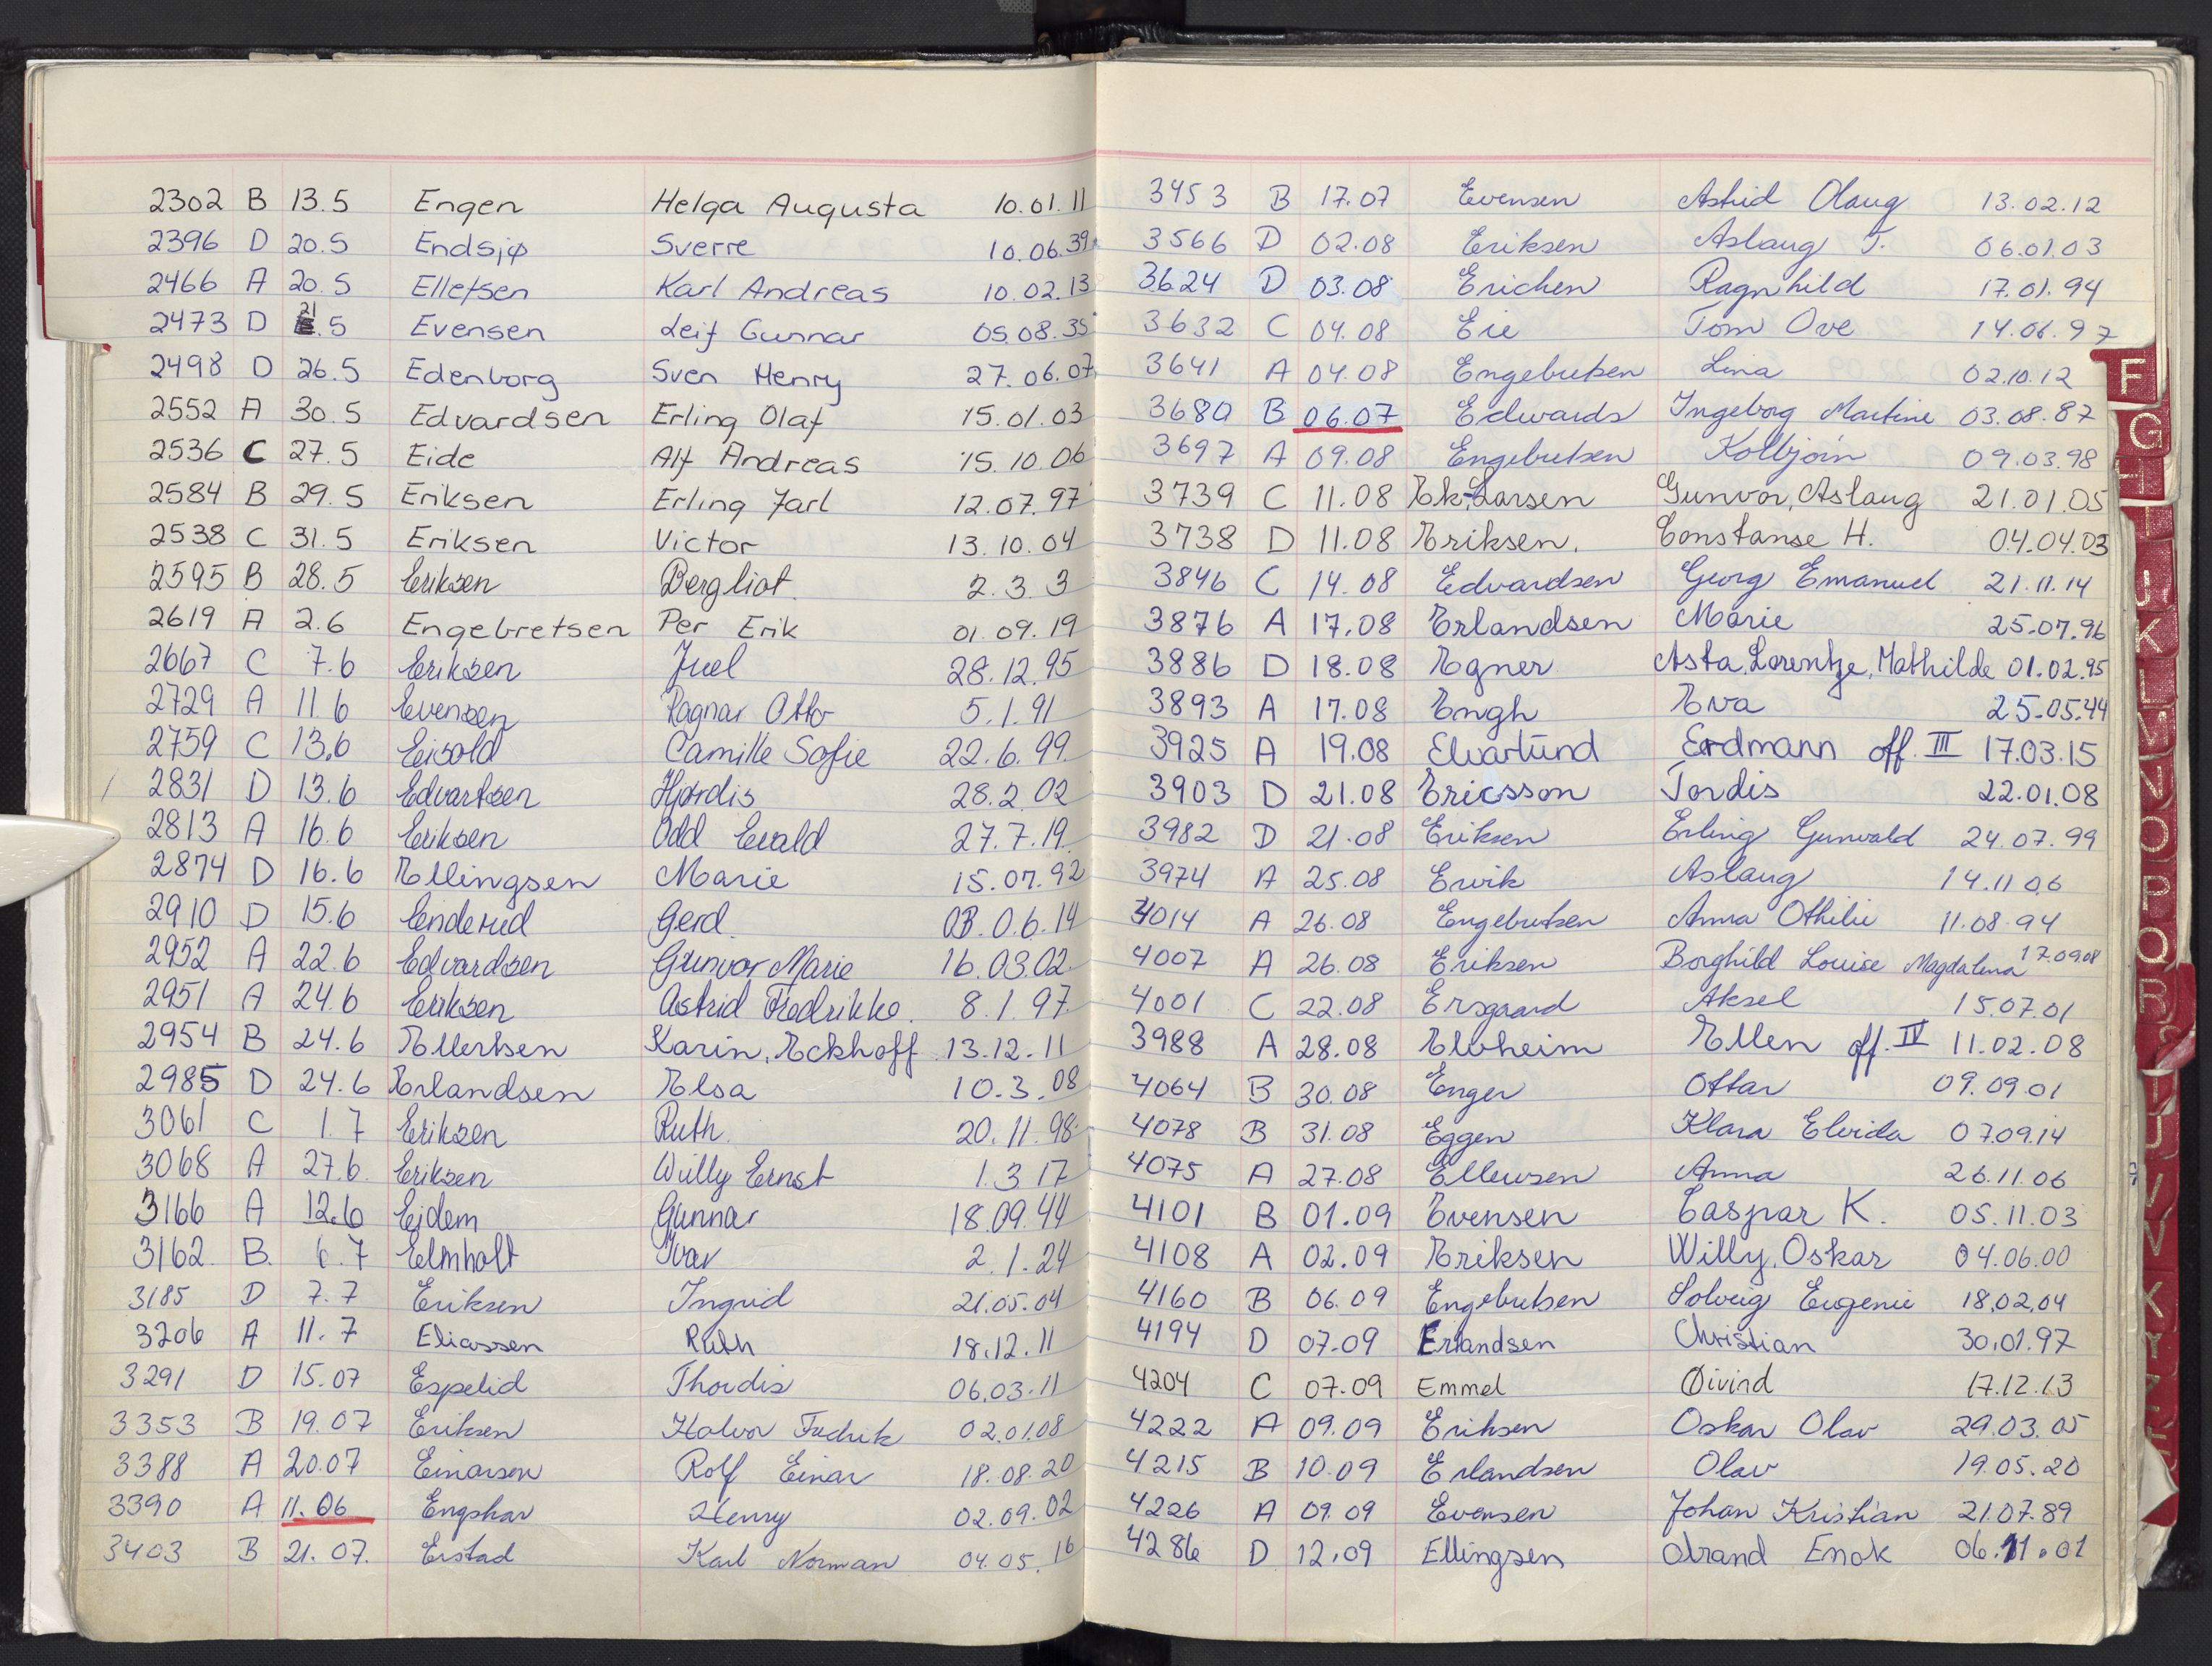 2302 B 13.5 Engen Helga Augusta 10.01.11
2396 D 20.5 Endsjø Sverre 10.06.39
2466 A 20.5 Ellefsen Karl Andreas 10.02.13
2473 D 21.5 Evensen Leif Gunnar 05.08.35
2498 D 26.5 Edenborg Sven Henry 27.06.07
2552 A 30.5 Edvardsen Erling Olaf 15.01.03
2536 C 27.5 Eide Alf Andreas 15.10.06
2584 B 29.5 Eriksen Erling Jarl 12.07.97
2538 C 31.5 Eriksen Victor 13.10.04
2595 B 28.5 Eriksen Bergliot 2.3.3
2619 A 2.6 Engebretsen Per Erik 01.09.19
2667 C 7.6 Eriksen Juel 28.12.95
2729 A 11.6 Evensen Ragnar Otto 5.1.91
2759 C 13.6 Eisold Camilla Sofie 22.6.99
2831 D 13.6 Edvartsen Hjørdis 28.2.02
2813 A 16.6 Eriksen Odd Evald 27.7.19
2874 D 16.6 Ellingsen Marie 15.07.92
2910 D 15.6 Enderud Gerd 03.06.14
2952 A 22.6 Edvardsen Gunvor Marie 16.03.02
2951 A 24.6 Eriksen Astrid Fredrikke 8.1.97
2954 B 24.6 Ellertsen Karin, Eckhoff 13.12.11
2985 D 24.6 Erlandsen Elsa 10.3.08
3061 C 1.7 Eriksen Ruth 20.11.98
3068 A 27.6 Eriksen Willy Ernst 1.3 17
3166 A 12.6 Eidem Gunnar 18.09.44
3162 B. 6.7 Elmholt Ivar 2.1.24
3185 D 7.7 Eriksen Ingrid 21.05.04
3206 A 11.7 Eliassen Ruth 18.12.11
3291 D 15.07 Espelid Thordis 06.03.11
3353 B 19.07 Eriksen Halvor Fredrik 02.01.08
3388 A 20.07 Einarsen Rolf Einar 18.08.20
3390 A 11.06 Engskar Henry 02.09.02
3403 B 21.07. Erstad Karl Norman 04.05.16
3453 B 17.07 Evensen Astrid Olaug 13.02.12
3566 D 02.08 Eriksen Aslaug T. 06.01.03
3624 D 03.08 Erichen Ragnhild 17.01.94
3632 C 04.08 Eie Tom Ove 14.06.97
3641 A 04.08 Engebretsen Lina 02.10.12
3680 B 06.07 Edwards Ingeborg Martine 03.08.87
3697 A 09.08 Engebretsen Kolbjørn 09.03.98
3739 C 11.08 Ek-Larsen Gunvor, Aslaug 21.01.05
3738 D 11.08 Eriksen. Constanse H. 04.04.03
3846 C 14.08 Edvardsen Georg Emanuel 21.11.14
3876 A 17.08 Erlandsen Marie 25.07.96
3886 D 18.08 Egner Asta, Lorentze, Mathilde 01.02.95
3893 A 17.08 Engh Eva 25.05.44
3925 A 19.08 Elvarlund Erdmann off. III 17.03.15
3903 D 21.08 Ericsson Tordis 22.01.08
3982 D 21.08 Eriksen Erling Gunvald 24.07.99
3974 A 25.08 Ervik Aslaug 14.11 06
4014 A 26.08 Engebretsen Anna Othilie 11.08.94
4007 A 26.08 Eriksen Borghild Louise Magdalena 17.09.08
4001 C 22.08 Ersgaard Aksel 15.07.01
3988 A 28.08 Elvheim Ellen off. IV 11.02.08
4064 B 30.08 Enger Ottar 09.09.01
4078 B 31.08 Eggen Klara Elvida 07.09.14
4075 A 27.08 Ellevsen Anna 26.11.06
4101 B 01.09 Evensen Caspar K. 05.11.03
4108 A 02.09 Eriksen Willy, Oskar 04.06.00
4160 B 06.09 Engebretsen Solveig Eugenie 18.02.04
4194 D 07.09 Erlandsen Christian 30.01.97
4204 C 07.09 Emmel Øivind 17.12.13
4222 A 09.09 Eriksen Oskar Olav 29.03.05
4215 B 10.09 Erlandsen Olav 19.05.20
4226 A 09.09 Evensen Johan Kristian 21.07.89
4286 D 12.09 Ellingsen Strand Enok 06.11.01
F
G
H
I
J
K
L
M
N
O
P
Q
R
T
U
V